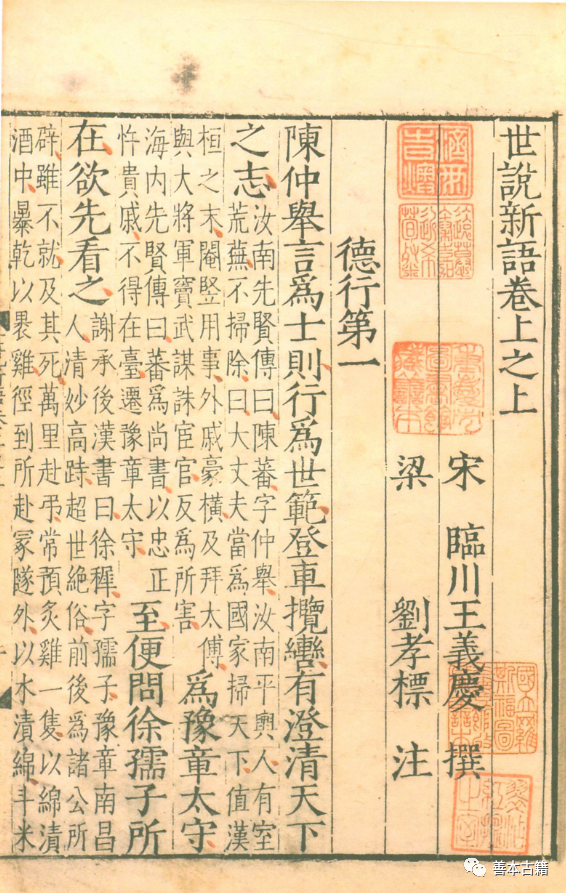 世說新語卷上之上
宋 臨川王義慶 撰
梁 劉孝標 注
德行第一
陳仲舉言爲士則行爲世範登車攬轡有澄清天下
之志
汝南先賢傳曰陳蕃字仲舉汝南平輿人有室
荒蕪不掃除曰大丈夫當爲國家掃天下值漢
桓之末閹豎用事外戚豪橫及拜太傅
與大將軍竇武謀誅宦官反爲所害
爲豫章太守
海內先賢傳曰蕃爲尚書以忠正
忤貴戚不得在臺遷豫章太守
至便問徐孺子所
在欲先看之
謝承後漢書曰徐穉字孺子豫章南昌
人清妙高跱超世絶俗前後爲諸公所
辟雖不就及其死萬里赴弔常預炙雞一隻以綿漬
酒中暴乾以裹雞徑到所赴冢隧外以水漬綿斗米
善本古籍